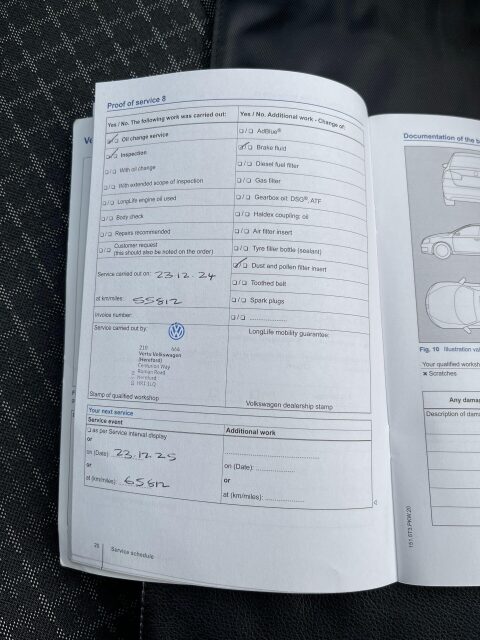 Proof of service 8
Yes / No. The following work was carried out:
☑/☐ Oil change service
☑/☐ Inspection
☐/☐ With oil change
☐/☐ With extended scope of inspection
☐/☐ LongLife engine oil used
☐/☐ Body check
☐/☐ Repairs recommended
☐/☐ Customer request
(this should also be noted on the order)
Service carried out on: 23.12.24
at km/miles: 55812
Invoice number:
Service carried out by:
Vertu Volkswagen
(Hereford)
Centurion Way
Roman Road
Hereford
HR1 1LQ
Stamp of qualified workshop
Yes / No. Additional work - Change of:
☐/☐ AdBlue®
☑/☐ Brake fluid
☐/☐ Diesel fuel filter
☐/☐ Gas filter
☐/☐ Gearbox oil: DSG®, ATF
☐/☐ Haldex coupling: oil
☐/☐ Air filter insert
☐/☐ Tyre filler bottle (sealant)
☑/☐ Dust and pollen filter insert
☐/☐ Toothed belt
☐/☐ Spark plugs
☐/☐ ..............
LongLife mobility guarantee:
Volkswagen dealership stamp
Your next service
Service event
☐ as per Service interval display
or
on (Date): 23.12.25
or
at (km/miles): 65812
Additional work
on (Date): ..............
or
at (km/miles): ..............
Service schedule
Documentation of the b
Fig. 10 Illustration va
Your qualified worksh
× Scratches
Any damag
Description of dama